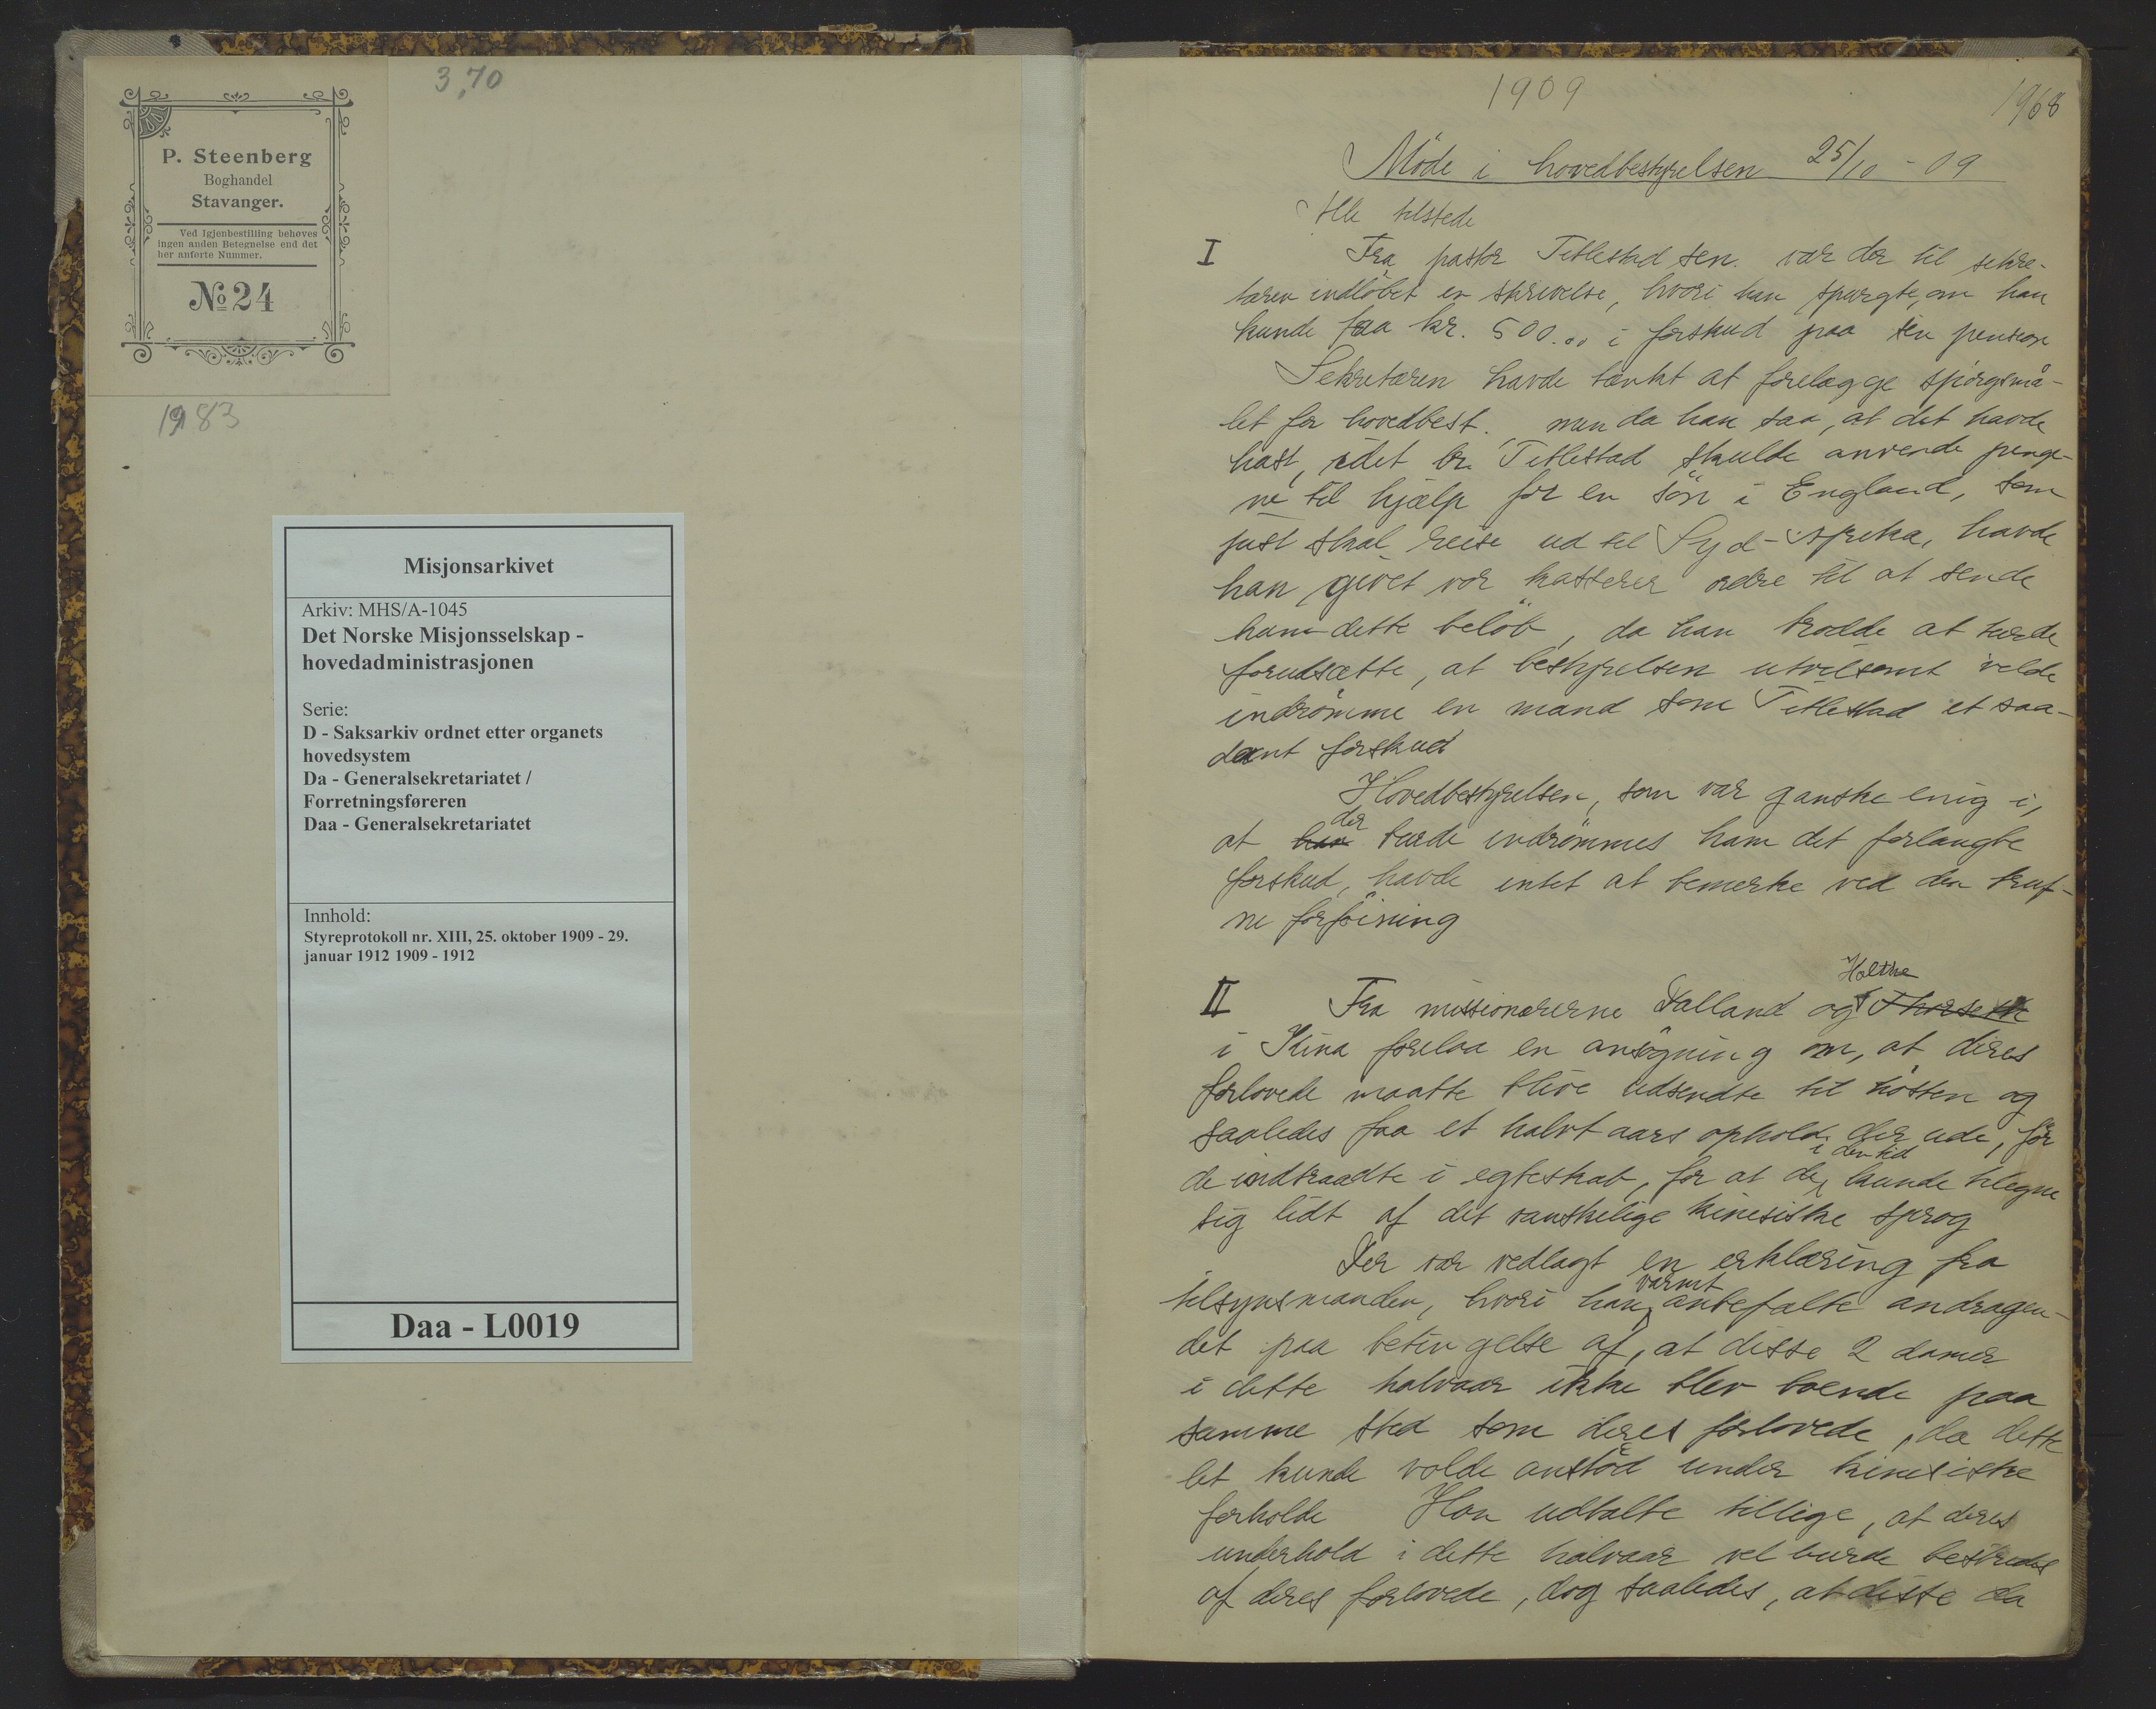 3,70
P. Steenberg
Boghandel
Stavanger.
Ved Igjenbestilling behøves
ingen anden Betegnelse end det
her anførte Nummer.
No 24
1983
Misjonsarkivet
Arkiv: MHS/A-1045
Det Norske Misjonsselskap -
hovedadministrasjonen
Serie:
D - Saksarkiv ordnet etter organets
hovedsystem
Da - Generalsekretariatet /
Forretningsføreren
Daa - Generalsekretariatet
Innhold:
Styreprotokoll nr. XIII, 25. oktober 1909 - 29.
januar 1912 1909 - 1912
Daa - L0019
1909
1968
Möde i hovedbestyrelsen 25/10 - 09
Alle tilstede
I Fra pastor Titlestad sen. var der til sekre-
tæren indløbet en skrivelse, hvori han spurgte, om han
kunde faa kr. 500.00 i forskud paa sin pension
Sekretæren havde tænkt at forelægge spörgsmå-
let for hovedbest. men da han saa, at det havde
hast, idet br. Titlestad skulde anvende penge-
ne til hjælp for en sön i England, som
just skal reise ud til Syd-Afrika, havde
han givet vor kasserer ordre til at sende
ham dette belöb, da han trodde at turde
forudsætte, at bestyrelsen utvilsomt vilde
indrömme en mand som Titlestad et saa-
dant forskud
Hovedbestyrelsen, som var ganske enig i,
der
at han burde indrömmes ham det forlangte
forskud, havde intet at bemerke ved den truf-
ne forföining
Holthe
II Fra missionærerne Dalland og
i Kina forelaa en ansögning om, at deres
forlovede maatte blive udsendte til hösten og
saaledes faa et halvt aars ophold der ude, för
i den tid
de indtraadte i egteskab, for at de kunde tilegne
sig lidt af det vanskelige kinesiske sprog
Der var vedlagt en erklæring fra
varmt
tilsynsmanden, hvori han anbefalte andragen-
det paa betingelse af, at disse 2 damer
i dette halvaar ikke blev boende paa
samme sted som deres forlovede, da dette
let kunde volde anstöd under kinesiske
forholde Han udtalte tillige, at deres
underhold i dette halvaar vel burde bestrides
af deres forlovede, dog saaledes, at disse da